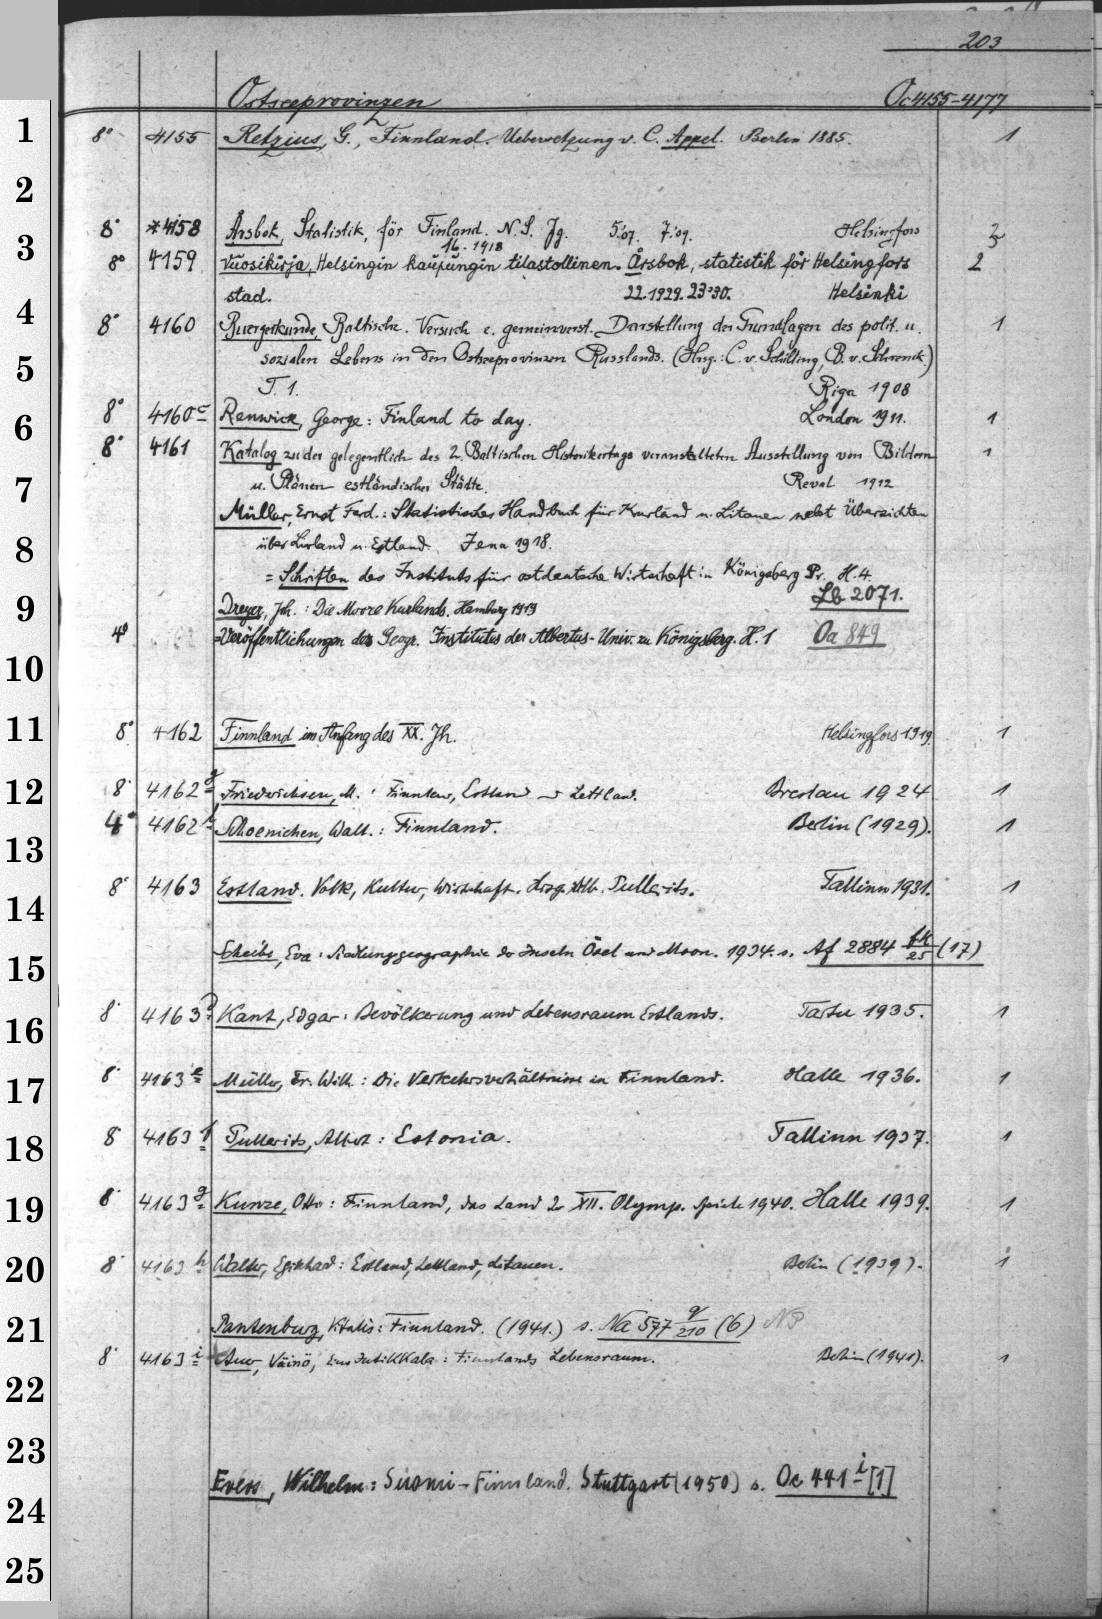 203
Ostseeprovinzen Oc 4155-4177
1
8° 4155 Retzius, G., Finnland. Uebersetzung v. C. Appel. Berlin 1885. 1
2
8° *4158 Årsbok, Statistik, för Finland. N.S. Jg. 5.'07. 7.'09. Helsingfors 2
3
16. 1918
8° 4159 Vuosikirja, Helsingin kaupungin tilastollinen. Årsbok, statistik för Helsingfors 2
stad. 22.1929. 23.'30. Helsinki
4
8° 4160 Buergerkunde, Baltische. Versuch e. gemeinverst. Darstellung der Grundlagen des polit. u. 1
sozialen Lebens in den Ostseeprovinzen Russlands. (Hrsg.: C. v. Schilling, B. v. Schrenck.)
5
T. 1. Riga 1908
6
8° 4160c Renwick, George: Finland to day. London 1911. 1
8° 4161 Katalog zu der gelegentlich des 2. Baltischen Historikertags veranstalteten Ausstellung von Bildern 1
7
u. Plänen estländischer Städte. Reval 1912
Müller, Ernst Ferd.: Statistisches Handbuch für Kurland u. Litauen nebst Übersichten
8
über Livland u. Estland. Jena 1918.
= Schriften des Instituts für ostdeutsche Wirtschaft in Königsberg Pr. H. 4.
Lb 2071.
9
Dreyer, Joh.: Die Moore Kurlands. Hamburg 1919
4° = Veröffentlichungen des Geogr. Institutes der Albertus-Univ. zu Königsberg. H. 1 Oa 849
10
11
8° 4162 Finnland im Anfang des XX. Jh. Helsingfors 1919. 1
12
8° 4162 Friederichsen, M.: Finnland, Estland u Lettland. Breslau 1924 1
4° 4162 Schoenichen, Walt.: Finnland. Berlin (1929). 1
13
8° 4163 Estland. Volk, Kultur, Wirtschaft. Hrsg. Alb. Pullerits. Tallinn 1931. 1
14
Scheibe, Eva: Siedlungsgeographie der Inseln Ösel und Moon. 1934. s. Af 2884 25 (17)
15
8° 4163 Kant, Edgar: Bevölkerung und Lebensraum Estlands. Tartu 1935. 1
16
8° 4163e Müller, Fr. Wilh.: Die Verkehrsverhältnisse in Finnland. Halle 1936. 1
17
8° 4163f Pullerits, Albert: Estonia. Tallinn 1937. 1
18
8° 4163g Kunze, Otto: Finnland, das Land der XII. Olymp. Spiele 1940. Halle 1939. 1
19
8° 4163h Walter, Egikhard: Estland, Lettland, Litauen. Berlin (1939). 1
20
21
Pantenburg, Vitalis: Finnland. (1941.) s. Na 577 q/210 (6) NP
8° 4163i Auer, Väinö, Eino Jutikkala: Finnlands Lebensraum. Berlin (1941). 1
22
23
Evers, Wilhelm: Suomi-Finnland. Stuttgart (1950) s. Oc 441i [1]
24
25